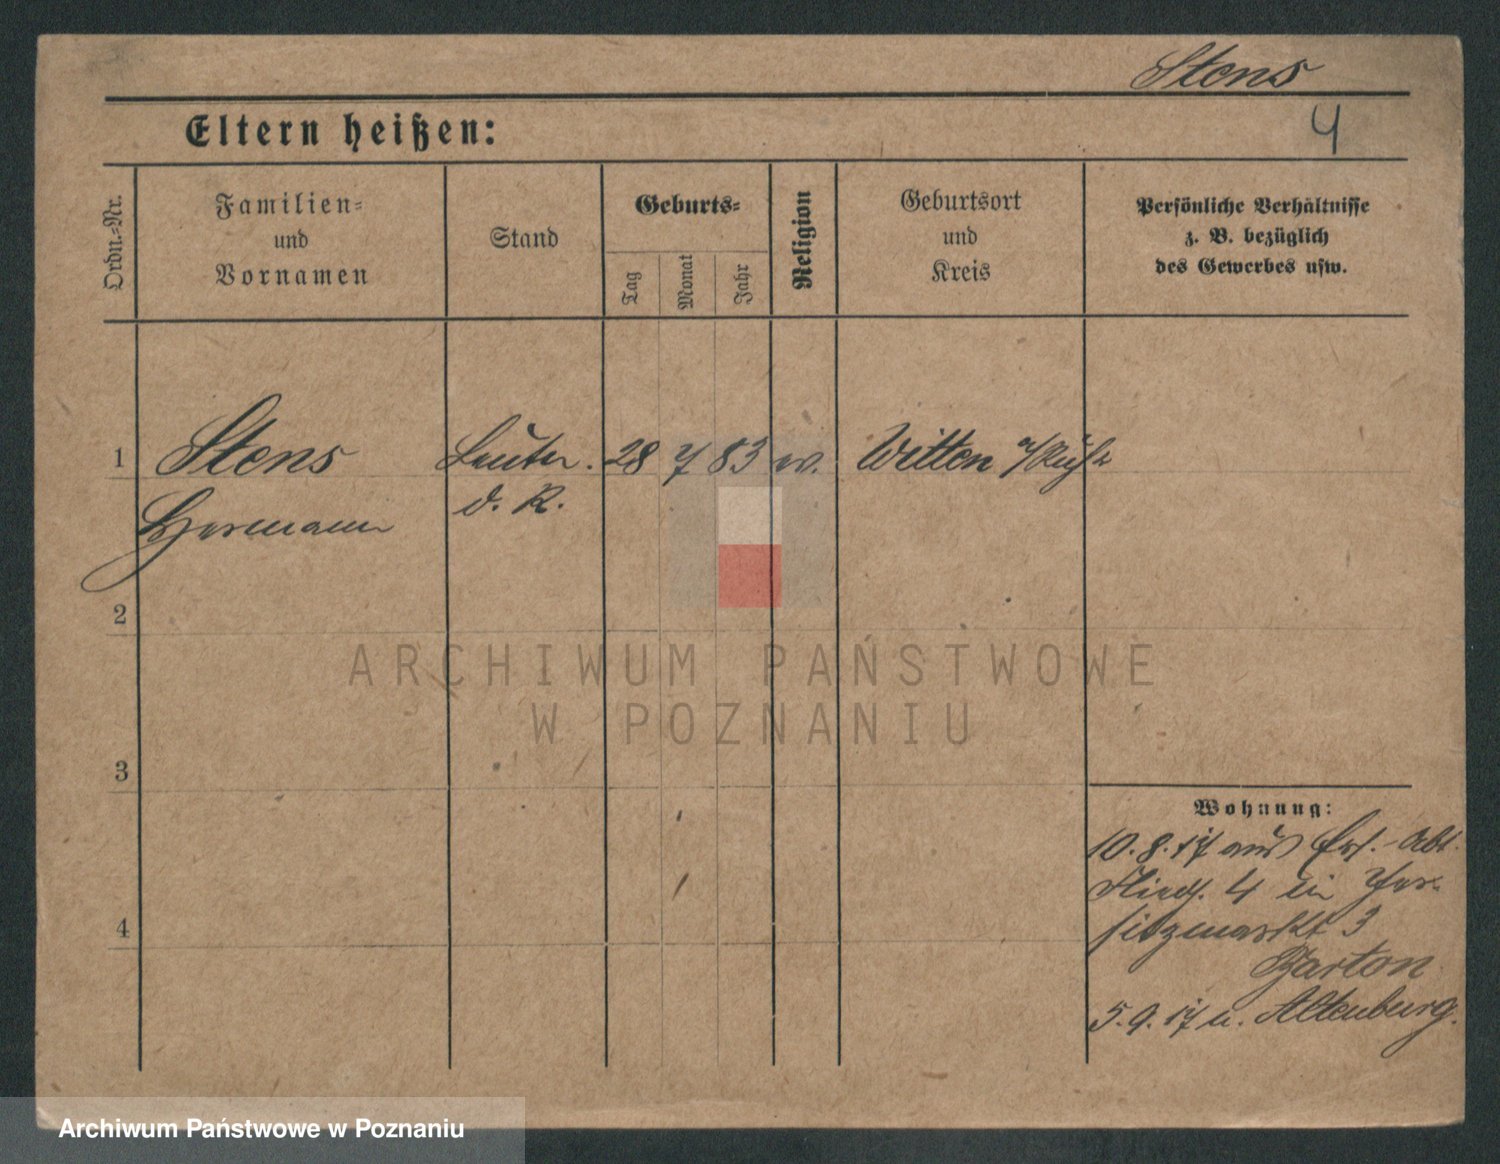 Stens
Eltern heißen:
4
Ordn.-Nr.
Familien-
und
Vornamen
Stand
Geburts-
Tag
Monat
Jahr
Religion
Geburtsort
und
Kreis
Persönliche Verhältnisse
z. B. bezüglich
des Gewerbes usw.
1
Stens
Leutn. 28 7 83 ev. Witten a/Ruhr
Hermann
d. R.
2
ARCHIWUM PAŃSTWOWE
W POZNANIU
3
Wohnung:
10.8.17 aus Ers. Abt.
4 in
4
3
Barton
5.9.17 n. Altenburg.
Archiwum Państwowe w Poznaniu